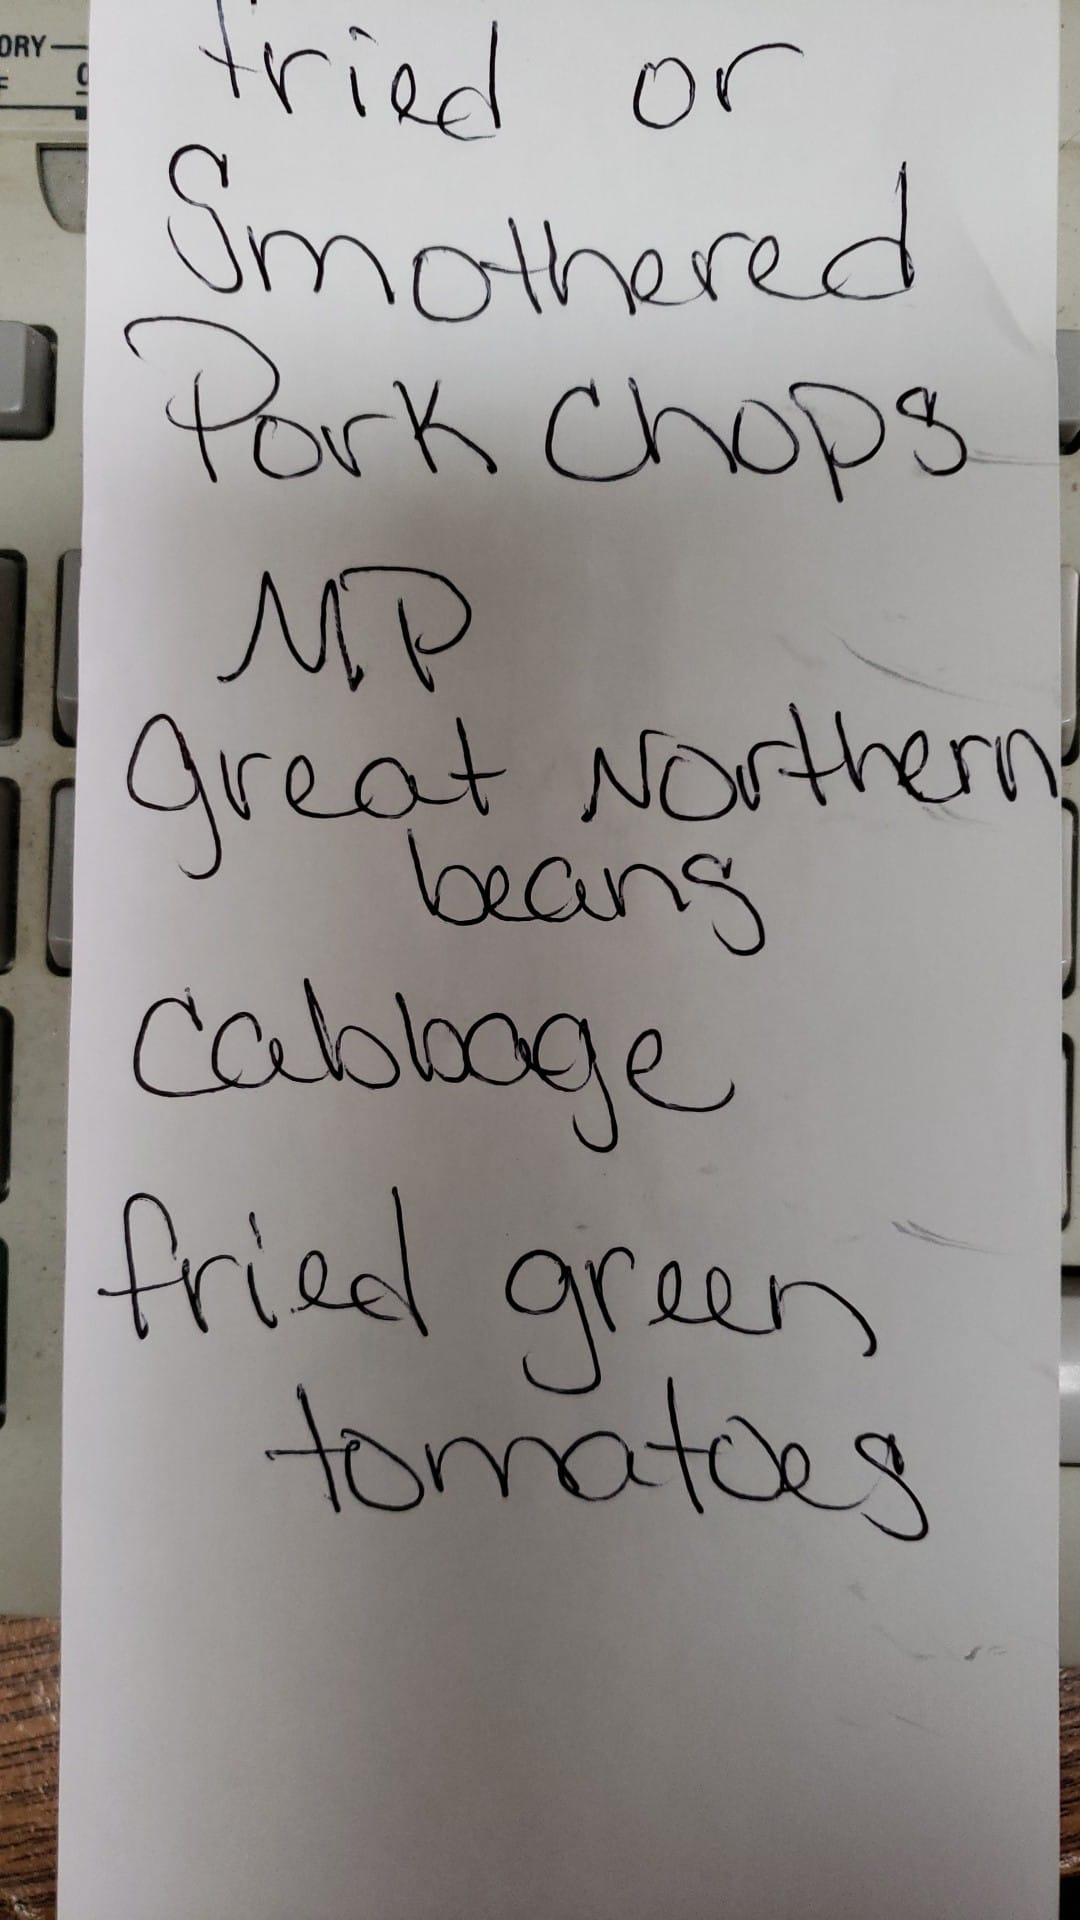 ORY
fried or
Smothered
Pork Chops
MP
great Northern
beans
Cabbage
fried green
tomatoes